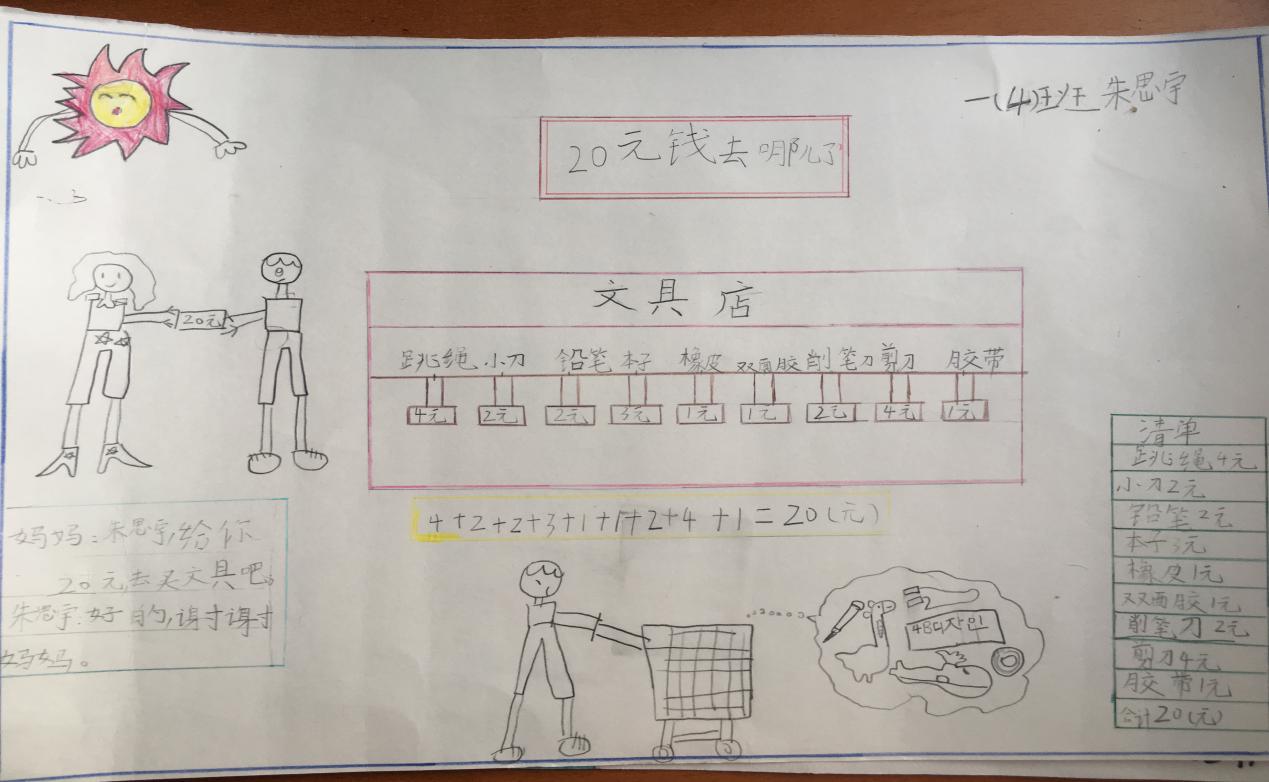 一(4)班 朱思宇
20元钱去哪儿了
20元
文具店
跳绳 小刀 铅笔 本子 橡皮 双面胶 削笔刀 剪刀 胶带
4元 2元 2元 3元 1元 1元 2元 4元 1元
4+2+2+3+1+1+2+4+1=20(元)
妈妈:朱思宇,给你
20元,去买文具吧。
朱思宇:好的,谢谢
妈妈。
4B디자인
清单
跳绳4元
小刀2元
铅笔2元
本子3元
橡皮1元
双面胶1元
削笔刀2元
剪刀4元
胶带1元
合计20(元)